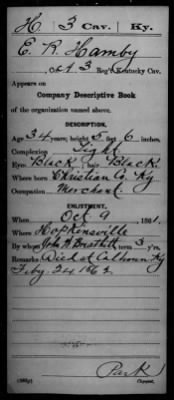 H | 3 Cav. | Ky.
E. R. Hamby
Co. A, 3 Reg't Kentucky Cav.
Appears on
Company Descriptive Book
of the organization named above.
DESCRIPTION.
Age 34 years; height 5 feet 6 inches.
Complexion Light
Eyes Black; hair Black
Where born Christian Co. Ky
Occupation Merchant
ENLISTMENT.
When Oct 9, 1861.
Where Hopkinsville
By whom John W. Breathitt; term 3 y'rs.
Remarks Died at Calhoun Ky
Feby. 24 1862
Park
Copyist.